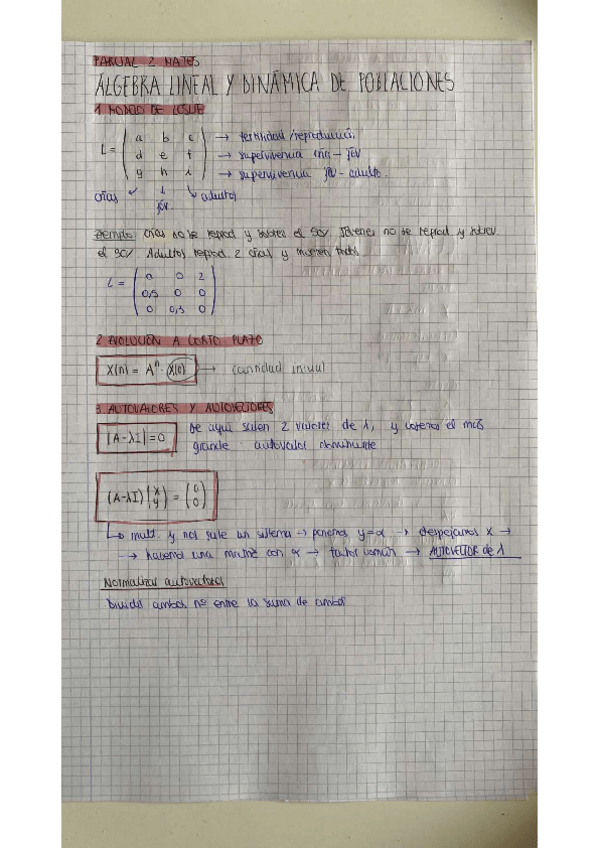 PARCIAL 2 MATES
ÁLGEBRA LINEAL Y DINÁMICA DE POBLACIONES
1. MODELO DE LESLIE
L = ( a b c ) → fertilidad/reproducción
( d e f ) → supervivencia crías - jóv
( g h i ) → supervivencia jóv - adulto
crías ↓ jóv. adultos
Ejemplo: crías no se reprod. y mueren el 50%. Jóvenes no se reprod. y mueren
el 50%. Adultos reprod. 2 crías y mueren todos
L = ( 0 0 2 )
( 0,5 0 0 )
( 0 0,5 0 )
2. EVOLUCIÓN A CORTO PLAZO
X(n) = Aⁿ · X(0) → cantidad inicial
3. AUTOVALORES Y AUTOVECTORES
|A-λI| = 0 De aquí salen 2 valores de λ, y cogemos el más
grande: autovalor dominante
(A-λI) (x y) = (0 0)
↳ mult. y nos sale un sistema → ponemos y=α → despejamos x →
→ hacemos una matriz con α → factor común → AUTOVECTOR de λ
Normalizar autovectores
Dividir ambos nº entre la suma de ambos